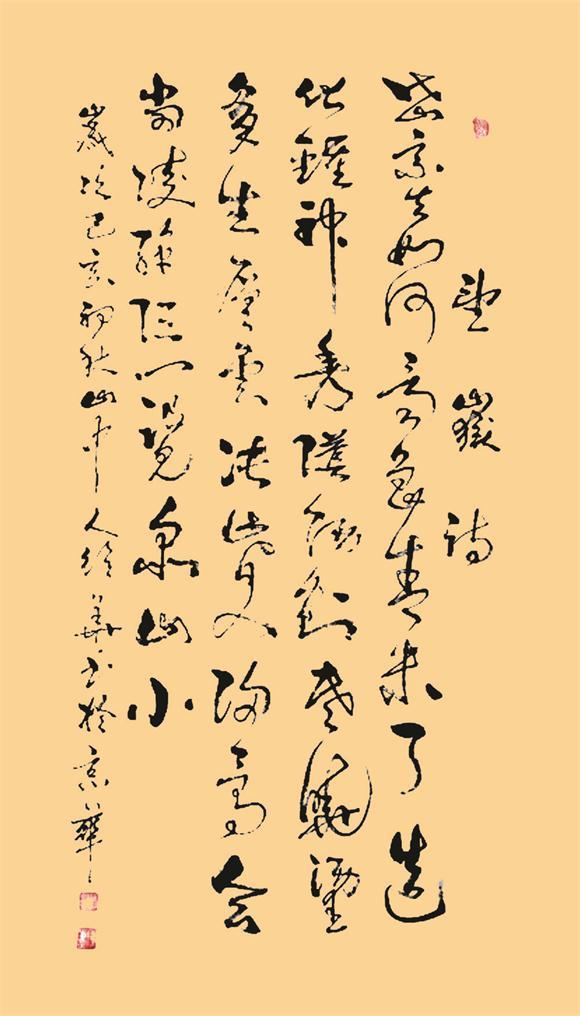 望嶽詩
岱宗夫如何齊魯青未了造
化鍾神秀陰陽割昏曉盪
胸生層雲決眥入歸鳥會
當凌絕頂一覽眾山小
歲次己亥初秋山中人華書於京華